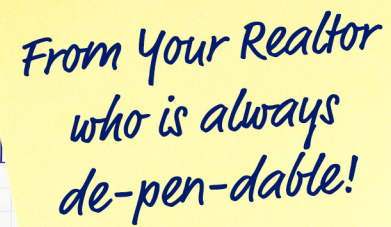 From Your Realtor
who is always
de-pen-dable!